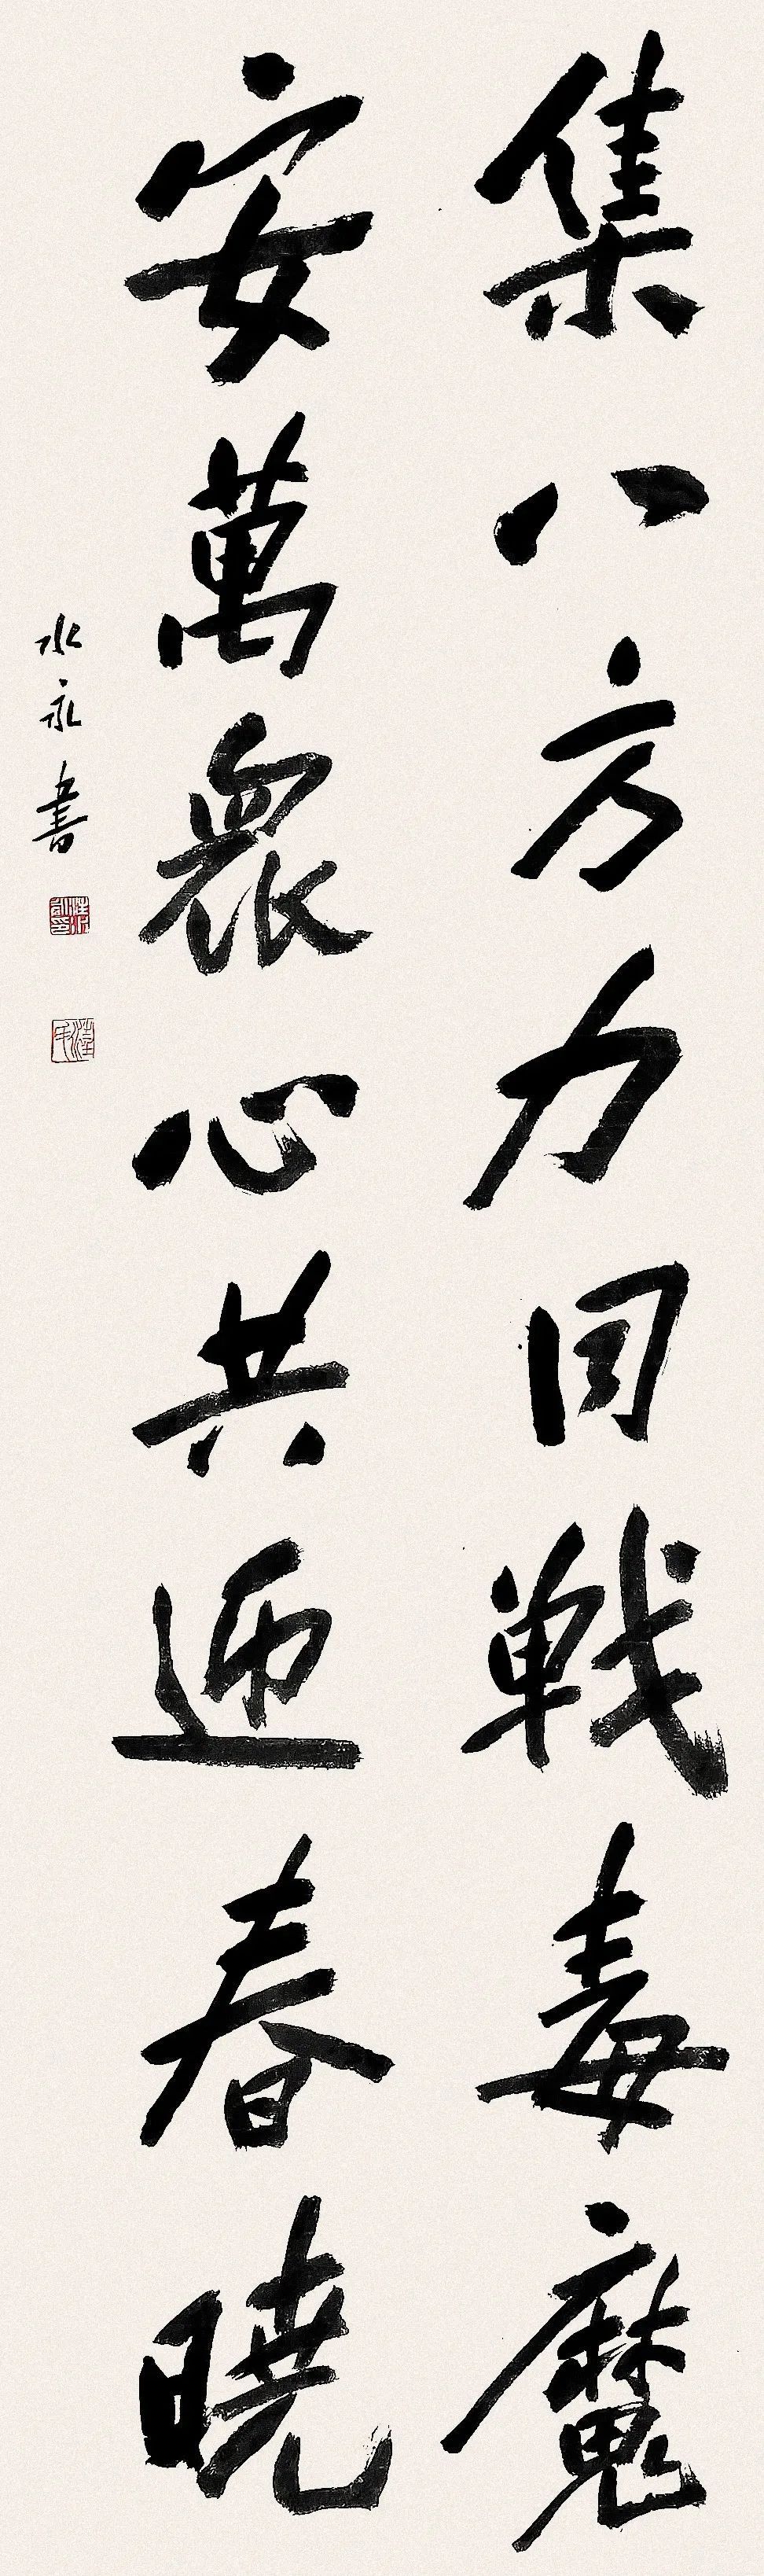 集八方力同戰毒魔
安萬眾心共迎春曉
水永書